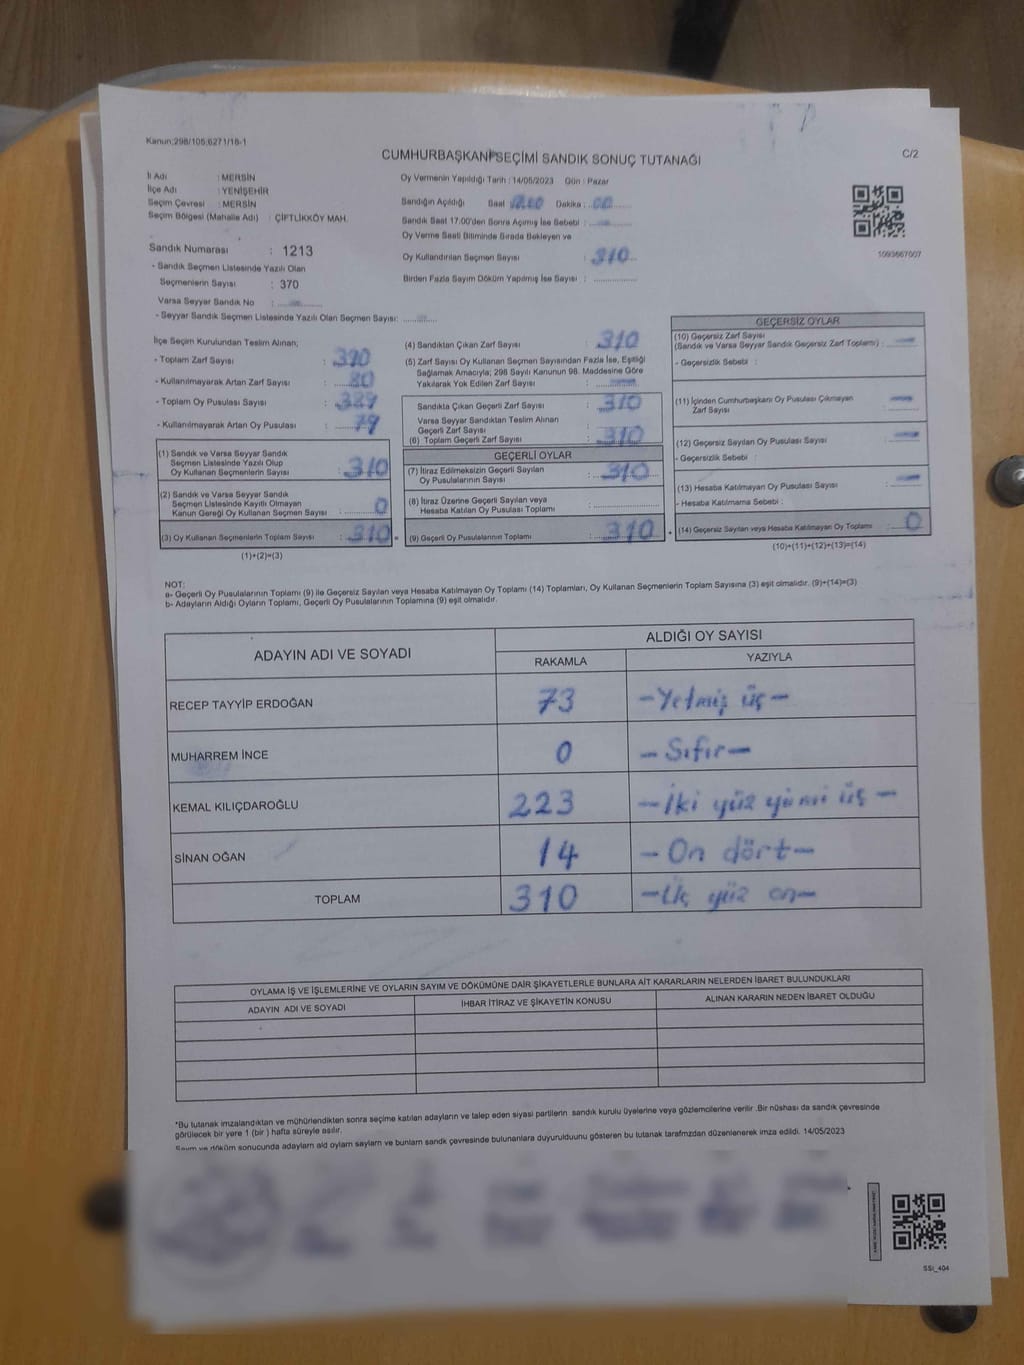 Kanun:298/105;6271/18-1
CUMHURBAŞKANI SEÇİMİ SANDIK SONUÇ TUTANAĞI
C/2
İl Adı : MERSİN
İlçe Adı : YENİŞEHİR
Seçim Çevresi : MERSİN
Seçim Bölgesi (Mahalle Adı) : ÇİFTLİKKÖY MAH.
Oy Vermenin Yapıldığı Tarih : 14/05/2023 Gün : Pazar
Sandığın Açıldığı Saat Dakika : 00
Sandık Saat 17:00'den Sonra Açılmış İse Sebebi :
Oy Verme Saati Bitiminde Sırada Bekleyen ve
Oy Kullandırılan Seçmen Sayısı : 310
Birden Fazla Sayım Döküm Yapılmış İse Sayısı :
1093667007
Sandık Numarası : 1213
- Sandık Seçmen Listesinde Yazılı Olan
Seçmenlerin Sayısı : 370
Varsa Seyyar Sandık No :
- Seyyar Sandık Seçmen Listesinde Yazılı Olan Seçmen Sayısı:
İlçe Seçim Kurulundan Teslim Alınan;
- Toplam Zarf Sayısı : 390
- Kullanılmayarak Artan Zarf Sayısı : 80
- Toplam Oy Pusulası Sayısı : 389
- Kullanılmayarak Artan Oy Pusulası : 79
(1) Sandık ve Varsa Seyyar Sandık
Seçmen Listesinde Yazılı Olup
Oy Kullanan Seçmenlerin Sayısı : 310
(2) Sandık ve Varsa Seyyar Sandık
Seçmen Listesinde Kayıtlı Olmayan
Kanun Gereği Oy Kullanan Seçmen Sayısı : 0
(3) Oy Kullanan Seçmenlerin Toplam Sayısı : 310
(1)+(2)=(3)
(4) Sandıktan Çıkan Zarf Sayısı : 310
(5) Zarf Sayısı Oy Kullanan Seçmen Sayısından Fazla İse, Eşitliği
Sağlamak Amacıyla; 298 Sayılı Kanunun 98. Maddesine Göre
Yakılarak Yok Edilen Zarf Sayısı :
Sandıkta Çıkan Geçerli Zarf Sayısı : 310
Varsa Seyyar Sandıktan Teslim Alınan
Geçerli Zarf Sayısı :
(6) Toplam Geçerli Zarf Sayısı : 310
GEÇERLİ OYLAR
(7) İtiraz Edilmeksizin Geçerli Sayılan
Oy Pusulalarının Sayısı : 310
(8) İtiraz Üzerine Geçerli Sayılan veya
Hesaba Katılan Oy Pusulası Toplamı :
(9) Geçerli Oy Pusulalarının Toplamı : 310
GEÇERSİZ OYLAR
(10) Geçersiz Zarf Sayısı
(Sandık ve Varsa Seyyar Sandık Geçersiz Zarf Toplamı) :
- Geçersizlik Sebebi :
(11) İçinden Cumhurbaşkanı Oy Pusulası Çıkmayan
Zarf Sayısı :
(12) Geçersiz Sayılan Oy Pusulası Sayısı :
- Geçersizlik Sebebi :
(13) Hesaba Katılmayan Oy Pusulası Sayısı :
- Hesaba Katılmama Sebebi :
(14) Geçersiz Sayılan veya Hesaba Katılmayan Oy Toplamı : 0
(10)+(11)+(12)+(13)=(14)
NOT:
a- Geçerli Oy Pusulalarının Toplamı (9) ile Geçersiz Sayılan veya Hesaba Katılmayan Oy Toplamı (14) Toplamları, Oy Kullanan Seçmenlerin Toplam Sayısına (3) eşit olmalıdır. (9)+(14)=(3)
b- Adayların Aldığı Oyların Toplamı, Geçerli Oy Pusulalarının Toplamına (9) eşit olmalıdır.
ADAYIN ADI VE SOYADI
ALDIĞI OY SAYISI
RAKAMLA YAZIYLA
RECEP TAYYİP ERDOĞAN 73 -Yetmiş üç-
MUHARREM İNCE 0 -Sıfır-
KEMAL KILIÇDAROĞLU 223 -İki yüz yirmi üç-
SİNAN OĞAN 14 -On dört-
TOPLAM 310 -Üç yüz on-
OYLAMA İŞ VE İŞLEMLERİNE VE OYLARIN SAYIM VE DÖKÜMÜNE DAİR ŞİKAYETLERLE BUNLARA AİT KARARLARIN NELERDEN İBARET BULUNDUKLARI
ADAYIN ADI VE SOYADI İHBAR İTİRAZ VE ŞİKAYETİN KONUSU ALINAN KARARIN NEDEN İBARET OLDUĞU
*Bu tutanak imzalandıktan ve mühürlendikten sonra seçime katılan adayların ve talep eden siyasi partilerin sandık kurulu üyelerine veya gözlemcilerine verilir .Bir nüshası da sandık çevresinde
görülecek bir yere 1 (bir ) hafta süreyle asılır.
Sayım ve döküm sonucunda adayların ald oyların sayların ve bunların sandk çevresinde bulunanlara duyurulduunu gösteren bu tutanak tarafmzdan düzenlenerek imza edildi. 14/05/2023
SSI_404